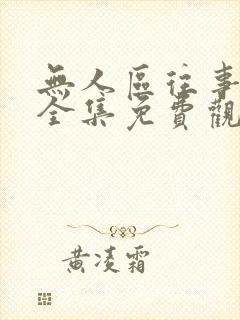 無人區往事
全集免費觀
黃凌霜